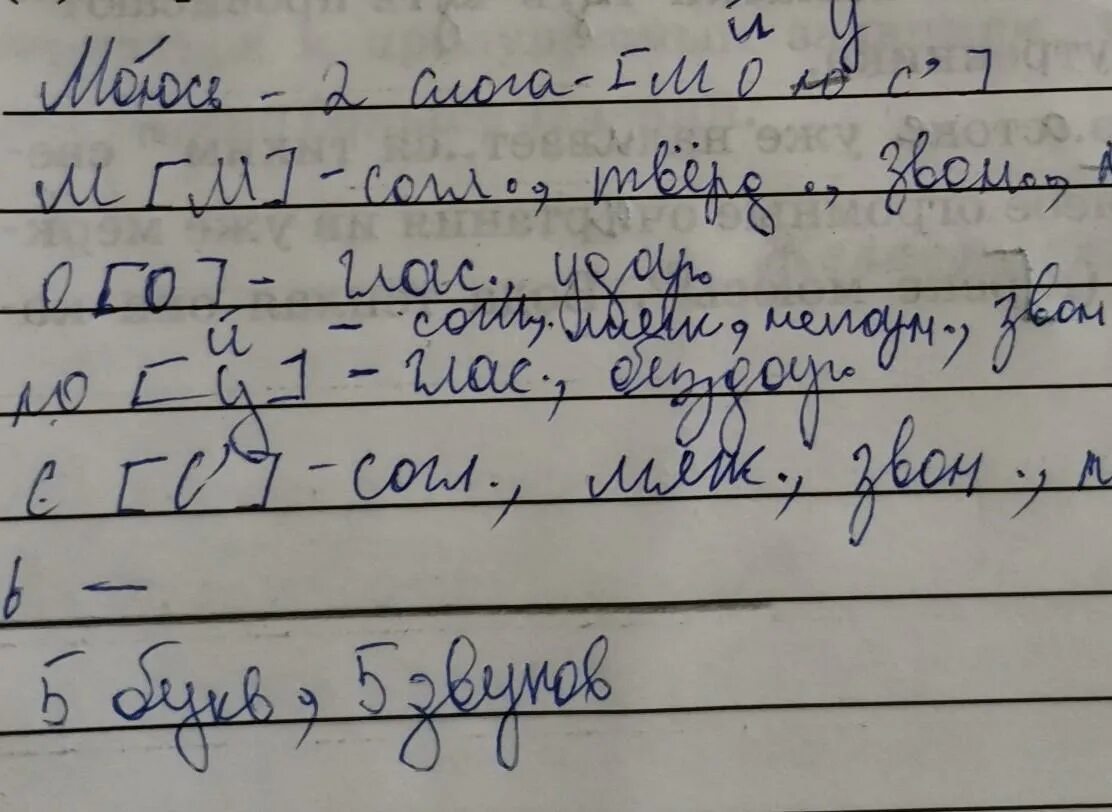 й у
Моюсь - 2 слога - [М О ю с’]
М [М] - согл., твёрд., звон., п
О [О] - глас., удар.
й - согл., мягк, непарн., звон
ю [у] - глас., безудар.
с [с’] - согл., мягк., звон., п
ь —
5 букв, 5 звуков